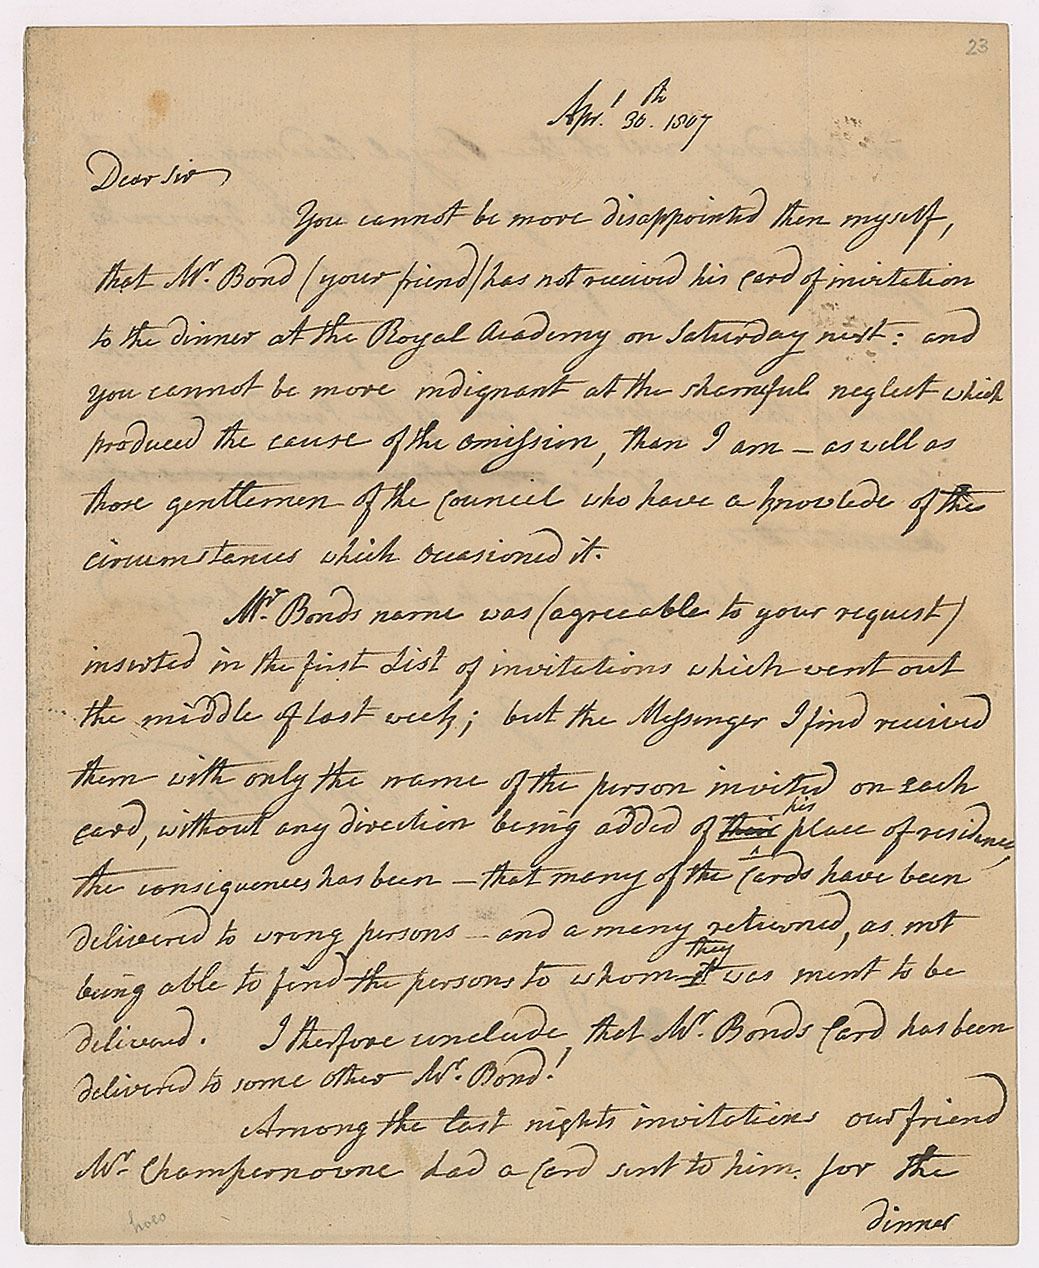 23
Apr.l 30.th 1807
Dear Sir
You cannot be more disappointed then myself,
that Mr. Bond (your friend) has not received his card of invitation
to the dinner at the Royal Academy on Saturday next: and
you cannot be more indignant at the shameful neglect which
produced the cause of the omission, than I am – as well as
those gentlemen of the Council who have a knowlede of the
circumstances which occasioned it.
Mr. Bonds name was (agreeable to your request)
inserted in the first List of invitations which went out
the middle of last week; but the Messinger I find received
them with only the name of the person invited on each
card, without any direction being added of their his place of residence,
the consiquences has been – that many of the Cards have been
delivered to wrong persons – and a many returned, as not
being able to find the persons to whom it they was ment to be
delivered. I therfore conclude, that Mr. Bonds Card has been
delivered to some other Mr. Bond!
Among the last nights invitations our friend
Mr. Champernowne had a Card sent to him for the
dinner
holo